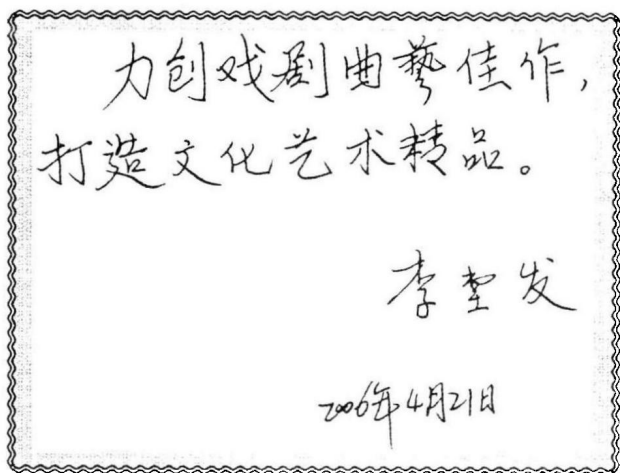 力创戏剧曲藝佳作,
打造文化艺术精品。
李 发
2006年4月21日